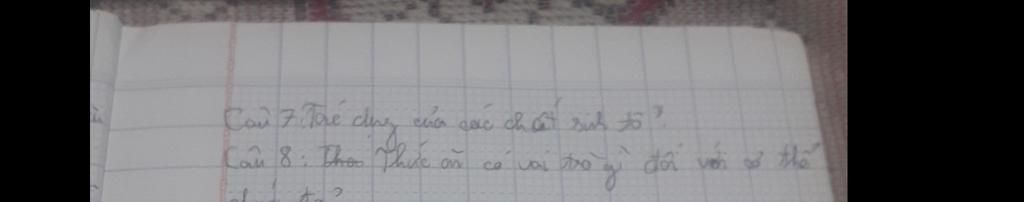 Câu 7. Tác dụng của các chất sinh tố?
Câu 8: Thức ăn có vai trò gì đối với cơ thể
chúng ta?